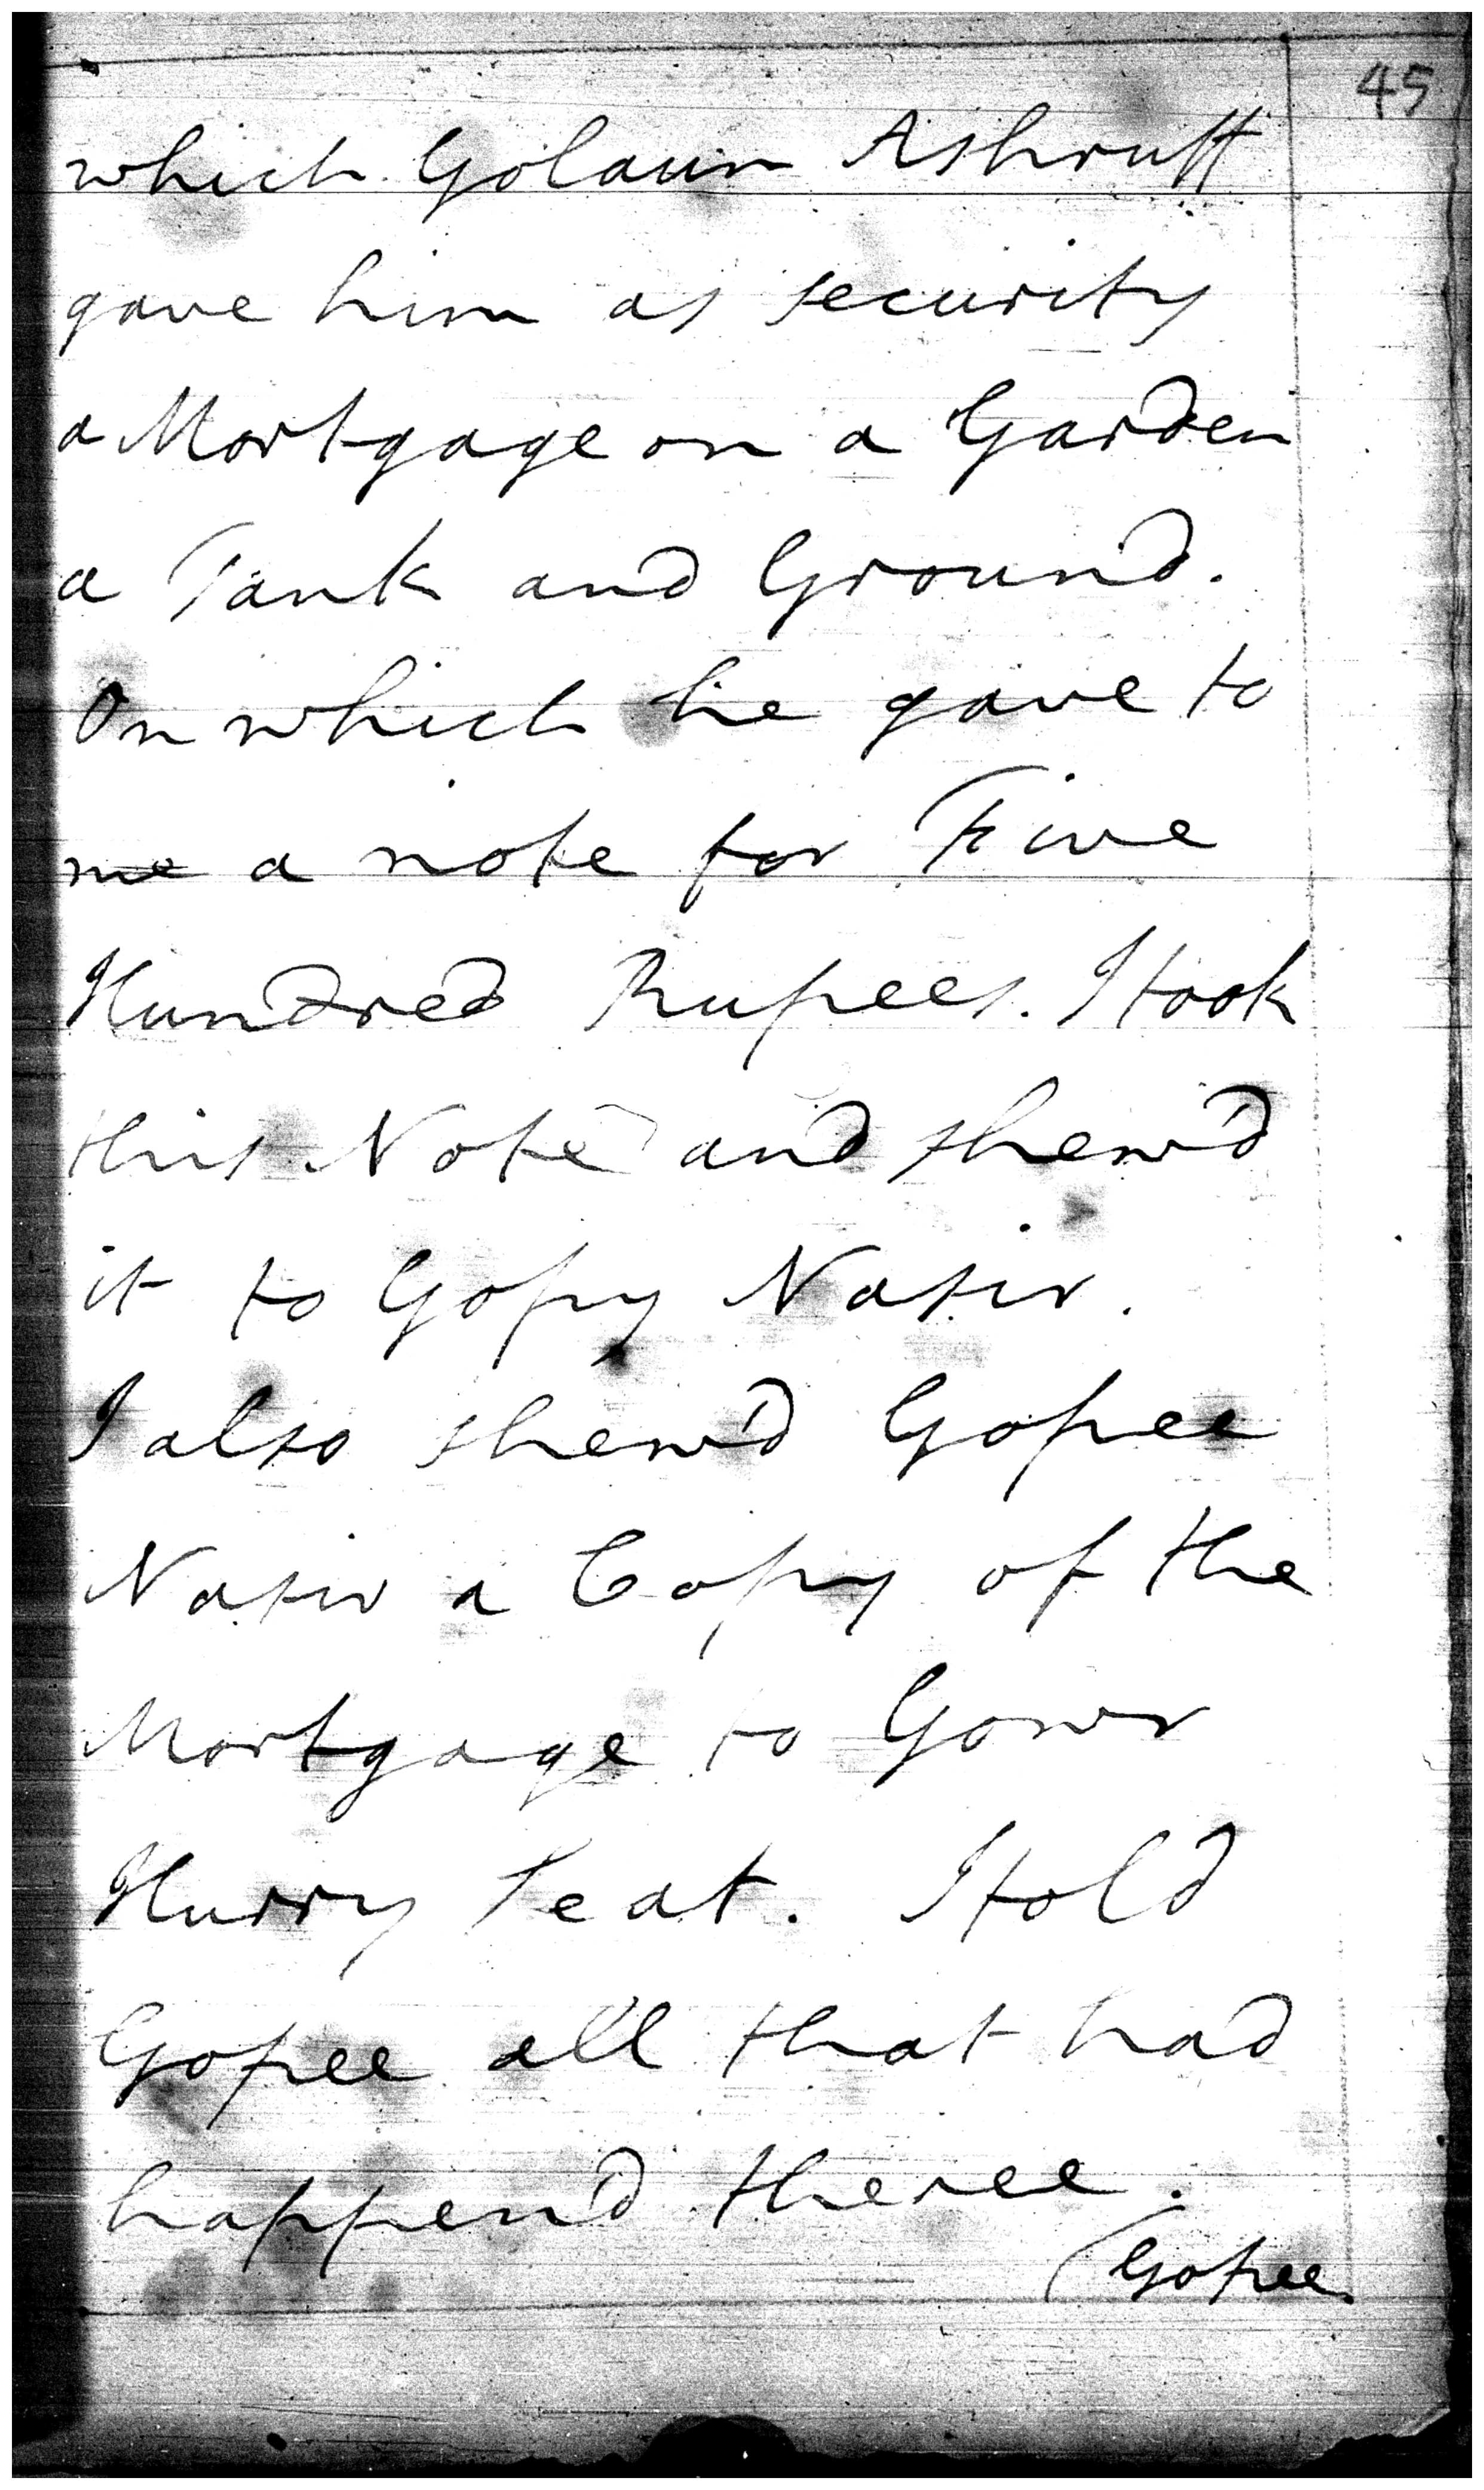 45
which Golaum Ashruff
gave him as security
a Mortgage on a Garden
a Tank and Ground.
On which he gave to
me a note for Five
Hundred Rupees. I took
this Note and shew'd
it to Gopy Nasir.
I also shew'd Gopee
Nasir a Copy of the
Mortgage to Gowr
Hurry Seat. I told
Gopee all that had
happen'd theree.
Gopee